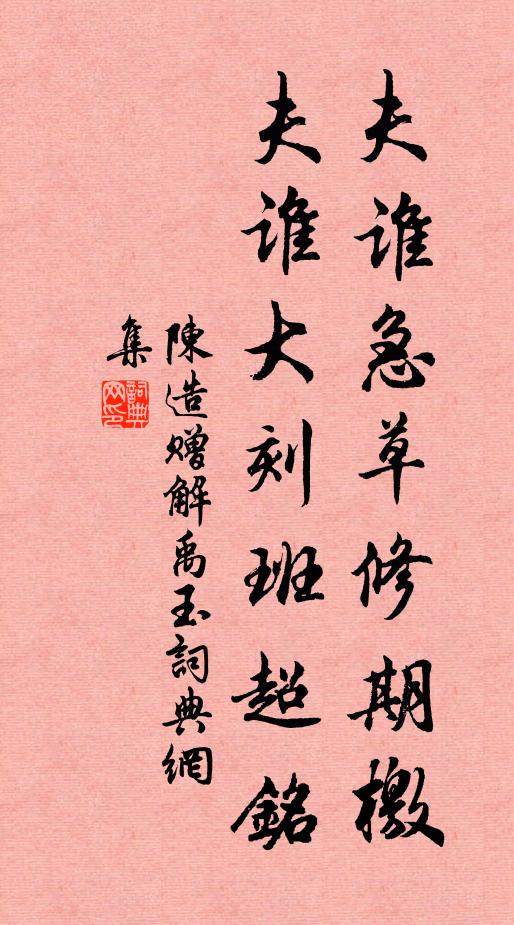 夫谁急草修期檄
夫谁大刻班超銘
陳造赠解禹玉詞典網
集
詞典網印